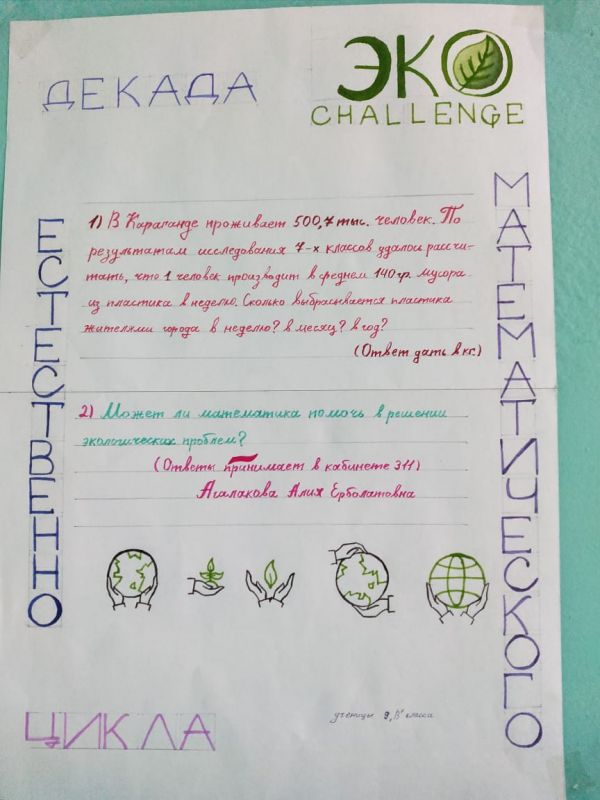 ДЕКАДА
ЭКО
CHALLENGE
ЕСТЕСТВЕННО
МАТЕМАТИЧЕСКОГО
1) В Караганде проживает 500,7 тыс. человек. По
результатам исследования 7-х классов удалось рассчи-
тать, что 1 человек производит в среднем 140 гр. мусора
из пластика в неделю. Сколько выбрасывается пластика
жителями города в неделю? в месяц? в год?
(Ответ дать в кг.)
2) Может ли математика помочь в решении
экологических проблем?
(Ответы принимает в кабинете 311)
Агалакова Алия Ерболатовна
ЦИКЛА
ученицы 9 "В" класса